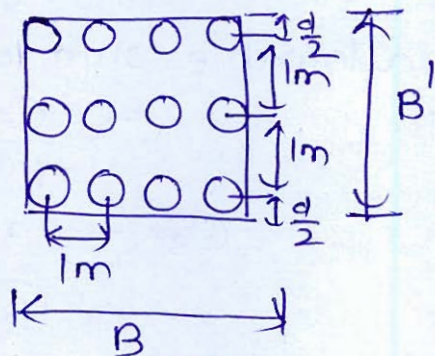 d/2
1m
B'
1m
d/2
1m
B